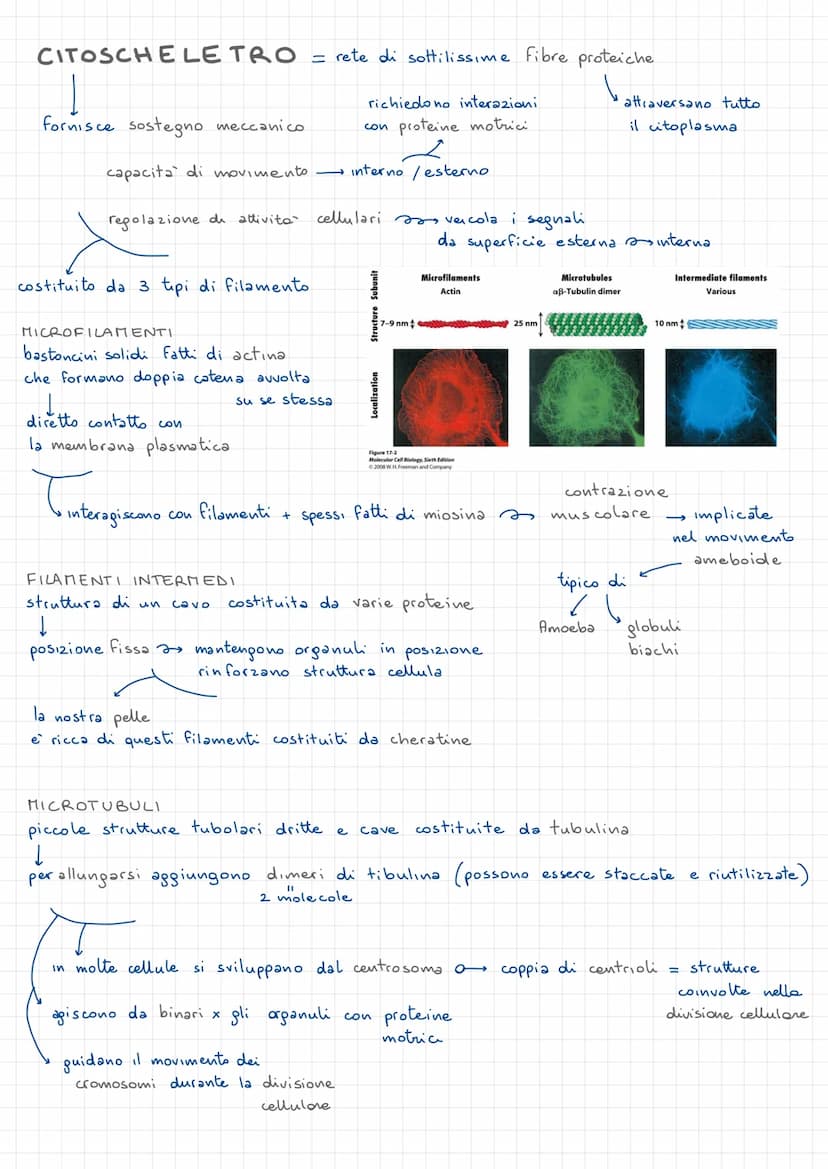 CITOSCHELETRO = rete di sottilissime fibre proteiche
richiedono interazioni
con proteine motrici
attraversano tutto
il citoplasma
fornisce sostegno meccanico
capacità di movimento → interno / esterno
regolazione di attività cellulari → veicola i segnali
da superficie esterna → interna
costituito da 3 tipi di filamento
MICROFILAMENTI
bastoncini solidi fatti di actina
che formano doppia catena avvolta
su se stessa
diretto contatto con
la membrana plasmatica
Structure Subunit
Microfilaments
Actin
Microtubules
αβ-Tubulin dimer
Intermediate filaments
Various
7–9 nm
25 nm
10 nm
Localization
Figure 17-2
Molecular Cell Biology, Sixth Edition
© 2008 W. H. Freeman and Company
interagiscono con filamenti + spessi fatti di miosina → contrazione
muscolare → implicate
nel movimento
ameboide
tipico di
Amoeba
globuli
biachi
FILAMENTI INTERMEDI
struttura di un cavo costituita da varie proteine
posizione fissa → mantengono organuli in posizione
rinforzano struttura cellula
la nostra pelle
è ricca di questi filamenti costituiti da cheratine
MICROTUBULI
piccole strutture tubolari dritte e cave costituite da tubulina
per allungarsi aggiungono dimeri di tibulina (possono essere staccate e riutilizzate)
"
2 molecole
in molte cellule si sviluppano dal centrosoma → coppia di centrioli = strutture
coinvolte nella
divisione cellulare
agiscono da binari x gli organuli con proteine
motrici
guidano il movimento dei
cromosomi durante la divisione
cellulare